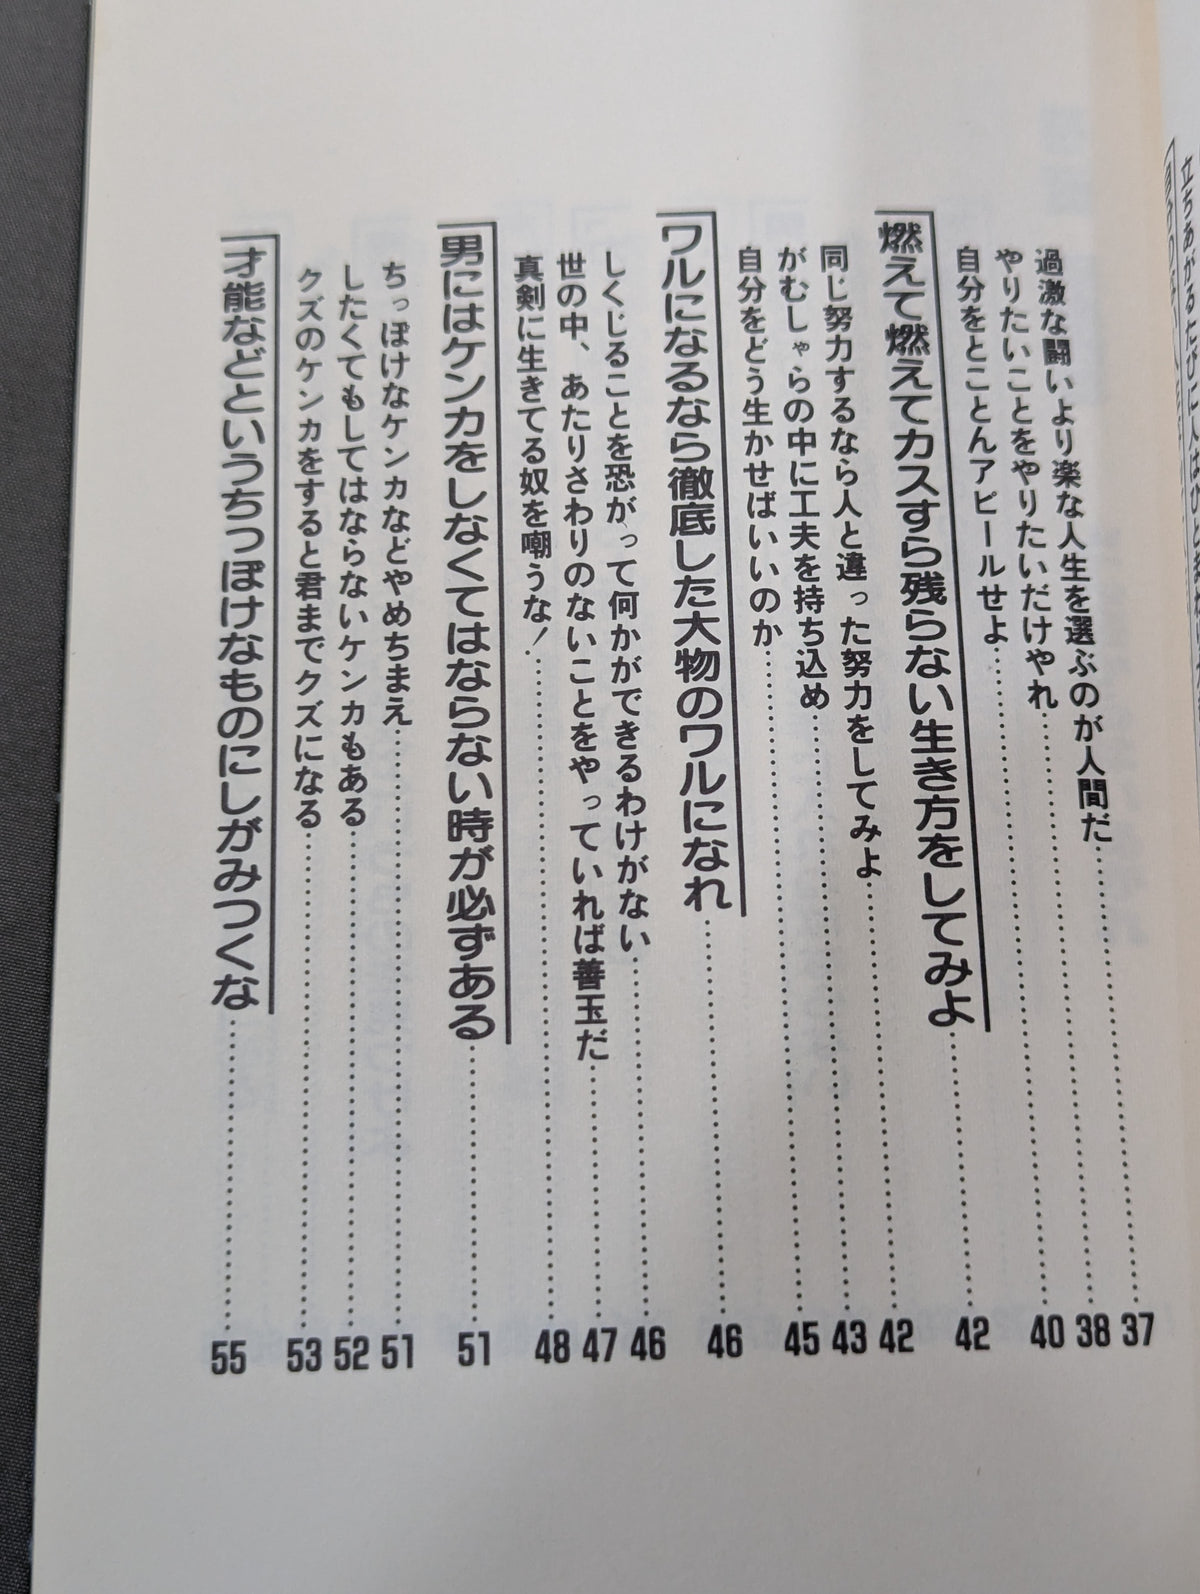 立ちあがるたびに人は
過激な闘いより楽な人生を選ぶのが人間だ……37
やりたいことをやりたいだけやれ……38
自分をとことんアピールせよ……40
燃えて燃えてカスすら残らない生き方をしてみよ……42
同じ努力するなら人と違った努力をしてみよ……42
がむしゃらの中に工夫を持ち込め……43
自分をどう生かせばいいのか……45
ワルになるなら徹底した大物のワルになれ……46
しくじることを恐がって何かができるわけがない……46
世の中、あたりさわりのないことをやっていれば善玉だ……47
真剣に生きてる奴を嘲うな！……48
男にはケンカをしなくてはならない時が必ずある……51
ちっぽけなケンカなどやめちまえ……51
したくてもしてはならないケンカもある……52
クズのケンカをすると君までクズになる……53
才能などというちっぽけなものにしがみつくな……55